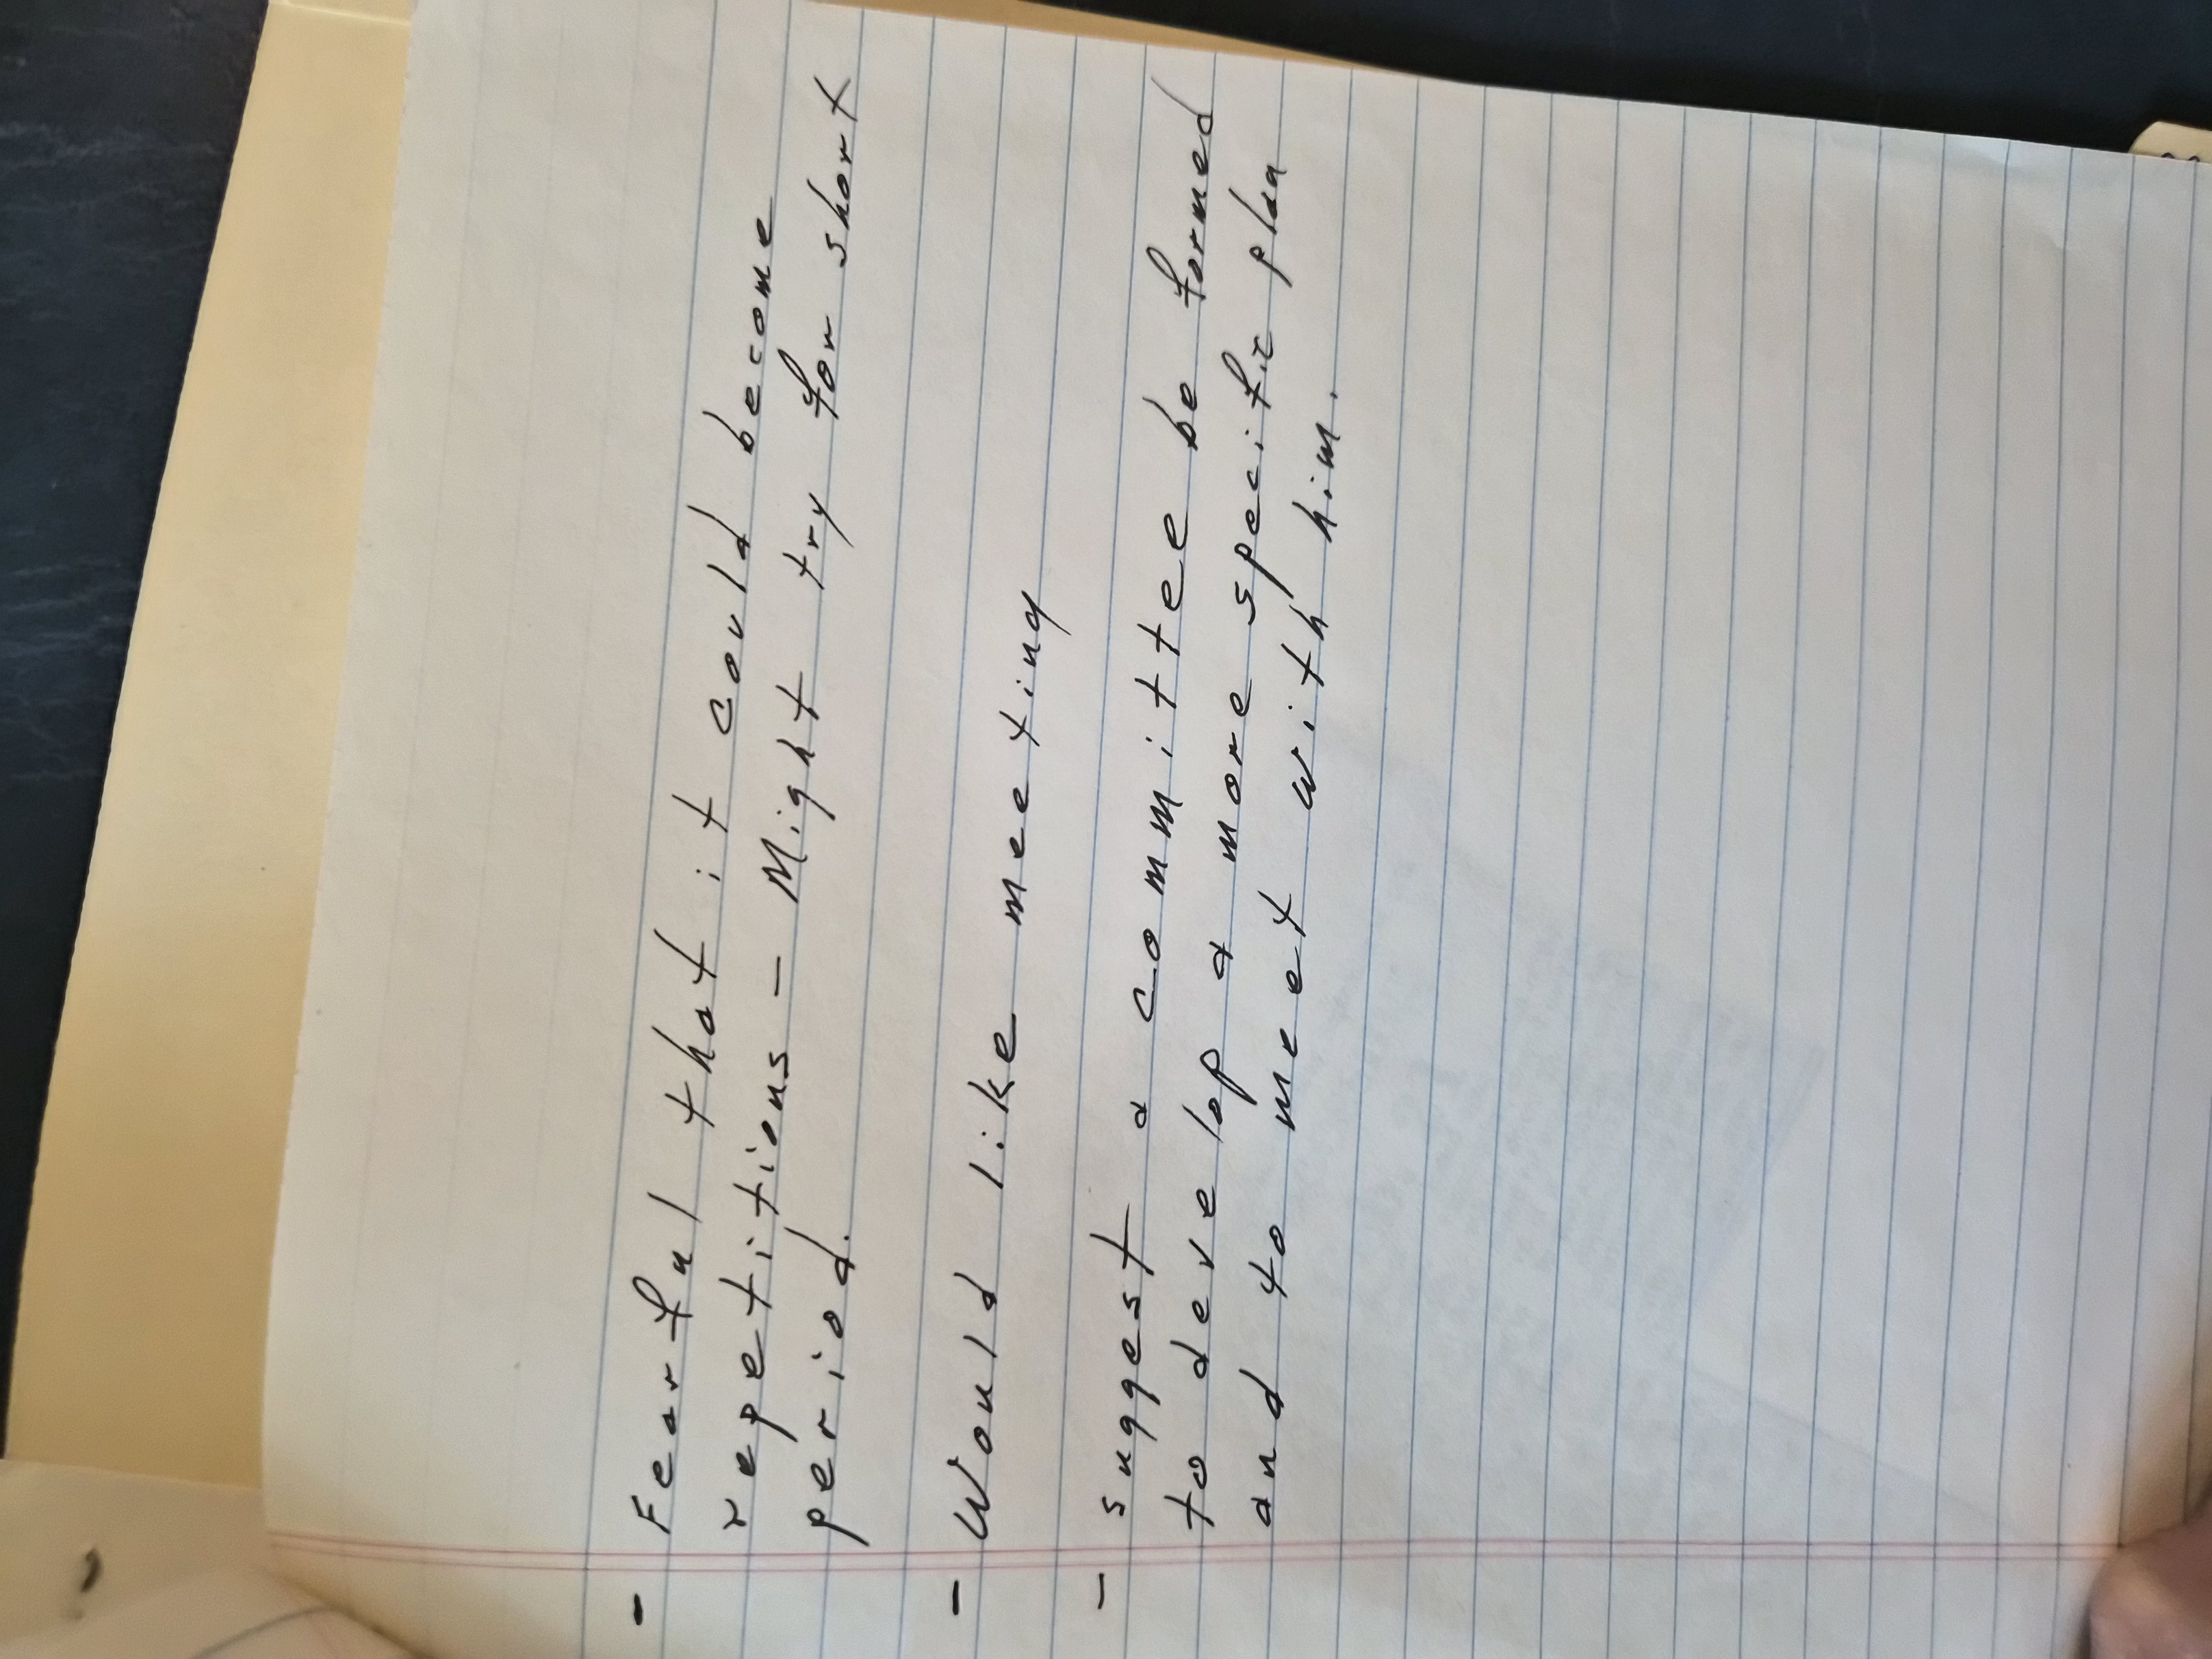 - Fearful that it could become
repetitions - Might try for short
period.
- Would like meeting
- suggest a committee be formed
to develop a more specific plan
and to meet with him.